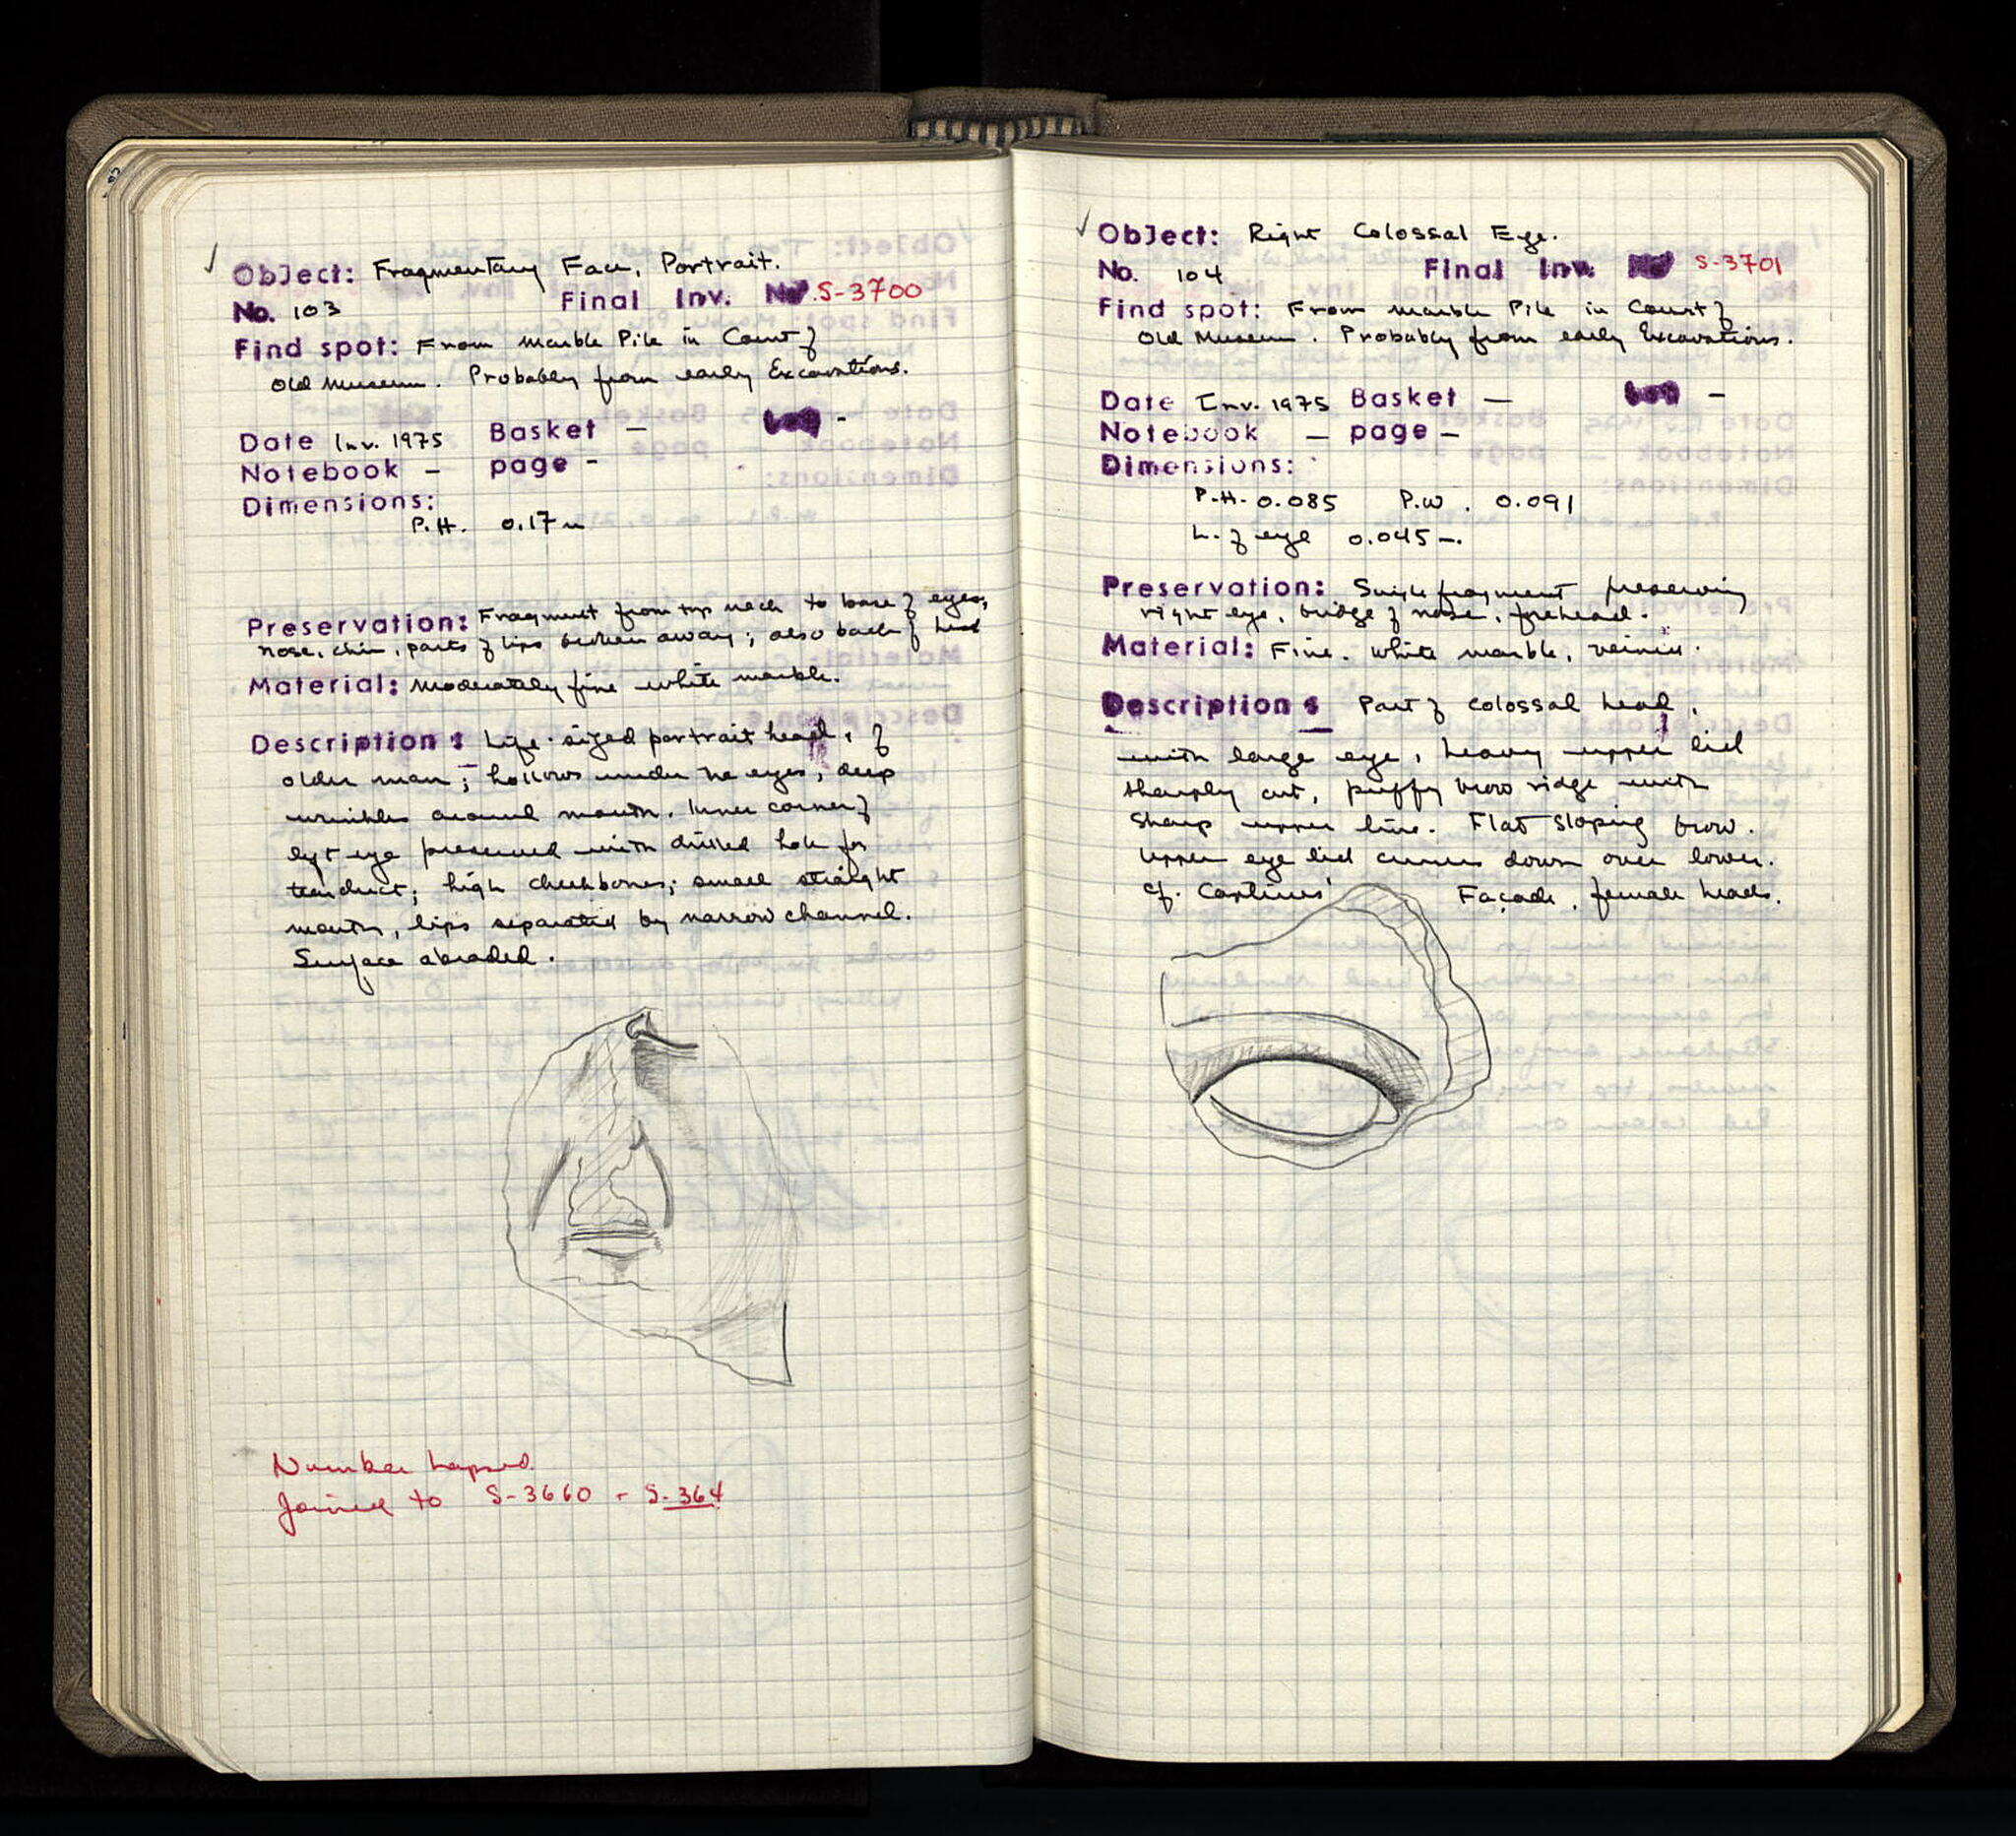 ✓ Object: Fragmentary Face, Portrait.
No. 103 Final Inv. No. S-3700
Find spot: From Marble Pile in Court of
Old Museum. Probably from early Excavations.
Date Inv. 1975 Basket — -
Notebook - page -
Dimensions:
P.H. 0.17 m
Preservation: Fragment from top neck to base of eyes,
nose, chin, parts of lips broken away; also back of head
Material: Moderately fine white marble.
Description: Life-sized portrait head, of
older man; hollows under the eyes, deep
wrinkles around mouth. Inner corner of
left eye preserved with drilled hole for
tear duct; high cheekbones; small straight
mouth, lips separated by narrow channel.
Surface abraded.
Number lapsed.
Joined to S-3660 - S-364
✓ Object: Right Colossal Eye.
No. 104 Final Inv. S-3701
Find spot: From marble Pile in Court of
Old Museum. Probably from early Excavations.
Date Inv. 1975 Basket — -
Notebook — page -
Dimensions:
P.H. 0.085 P.W. 0.091
L. of eye 0.045 m.
Preservation: Single fragment preserving
right eye, bridge of nose, forehead.
Material: Fine, white marble,
Description: Part of colossal head,
with large eye, heavy upper lid
sharply cut, puffy brow ridge with
sharp upper line. Flat sloping brow.
Upper eye lid curves down over lower.
cf. Captives' Façade, female heads.